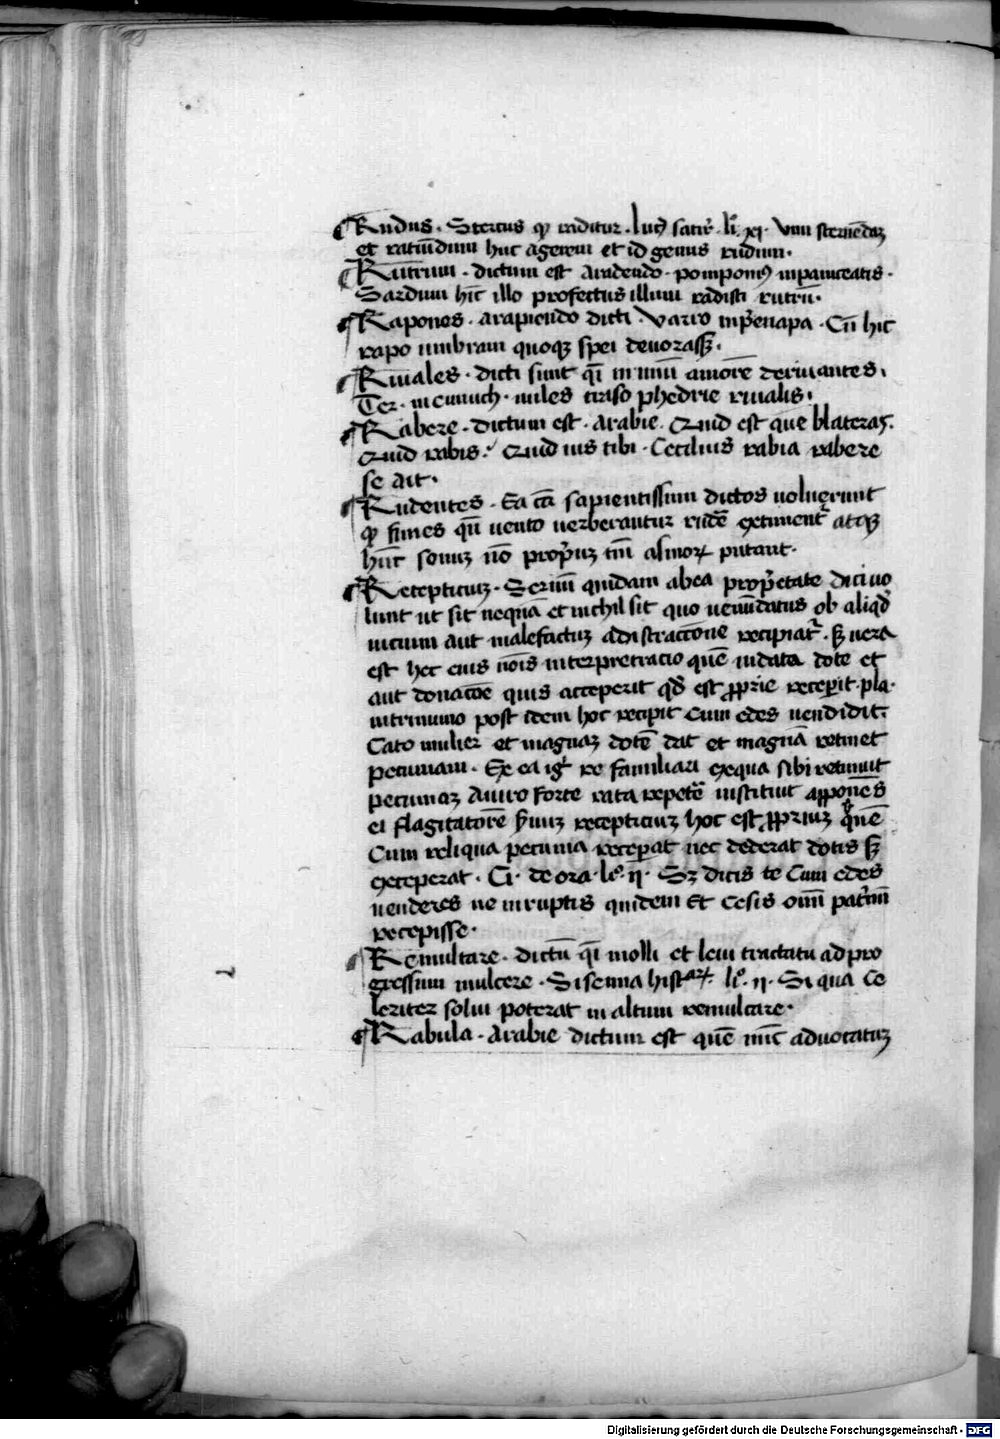 ¶Rudus. Stercus qđ raditur. luc̄ꝰ satir. li. xi. Viai sternēdaꝫ
et ratiūdum huc agerem et id genus rudium.
¶Rutrum. dictum est aradendo. pomponiꝰ inpaniceatis.
Sardum hic̄ illo profectus illum radisti rutrū.
¶Rapones. arapiendo dicti. Varro inp̄enapa. Cū hic
rapo umbram quoqꝫ spei deuorassꝫ.
¶Riuales. dicti sunt qͣi in unū amorē deriuantes.
Ter. in eunuch. miles traso phedrie riualis.
¶Rabere. dictum est. arabie. Quid est que blateras.
Quid rabis. Quid uis tibi. Cecilius rabia rabere
se ait.
¶Rudentes. Ea cā sapientissimi dictos uoluerunt
qđ funes qū uento uerberantur rudē extiment atqꝫ
hūc sonuꝫ nō prop̄uꝫ tm̄ asinoꝝ putant.
¶Recepticiuꝫ. Seruū quidam abea prop̄etate dici uo
lunt ut sit nequā et nichil sit quo uenūdatus ob aliqđ
uicium aut malefactuꝫ adistraccōne recipiatʳ. sꝫ uera
est hec eius nōis interpretracio quē indata dote et
aut donacōe quis acceperit qđ est ꝓprie receperit. pla.
intrinumo post idem hoc recipit cum edes uendidit.
Cato mulier et magnaꝫ dotē dat et magnā retinet
pecuniam. Ex ea igʳ re familiari exqua sibi retinuit
pecuniaꝫ Auiro forte rata repetē instituit apponēs
ei flagitatorē suuꝫ recepticiuꝫ hoc est ꝓpriuꝫ quē
Cum reliqua pecunia receperat nec dederat dotis sꝫ
exceperat. Ci. de ora. lº. ii. Sꝫ dicis te cum edes
uenderes ne inruptis quidem Et cesis om̄i patʳmī
recepisse.
¶Remultare. dictū qͣi molli et leui tractatu ad pro
gressum mulcere. Sisenna histaꝝ. liº. ii. Si qua ce
leriter solui poterat in altum remulcare.
¶Rabula. Arabie dictum est quē nūc aduocatuꝫ
Digitalisierung gefördert durch die Deutsche Forschungsgemeinschaft - DFG